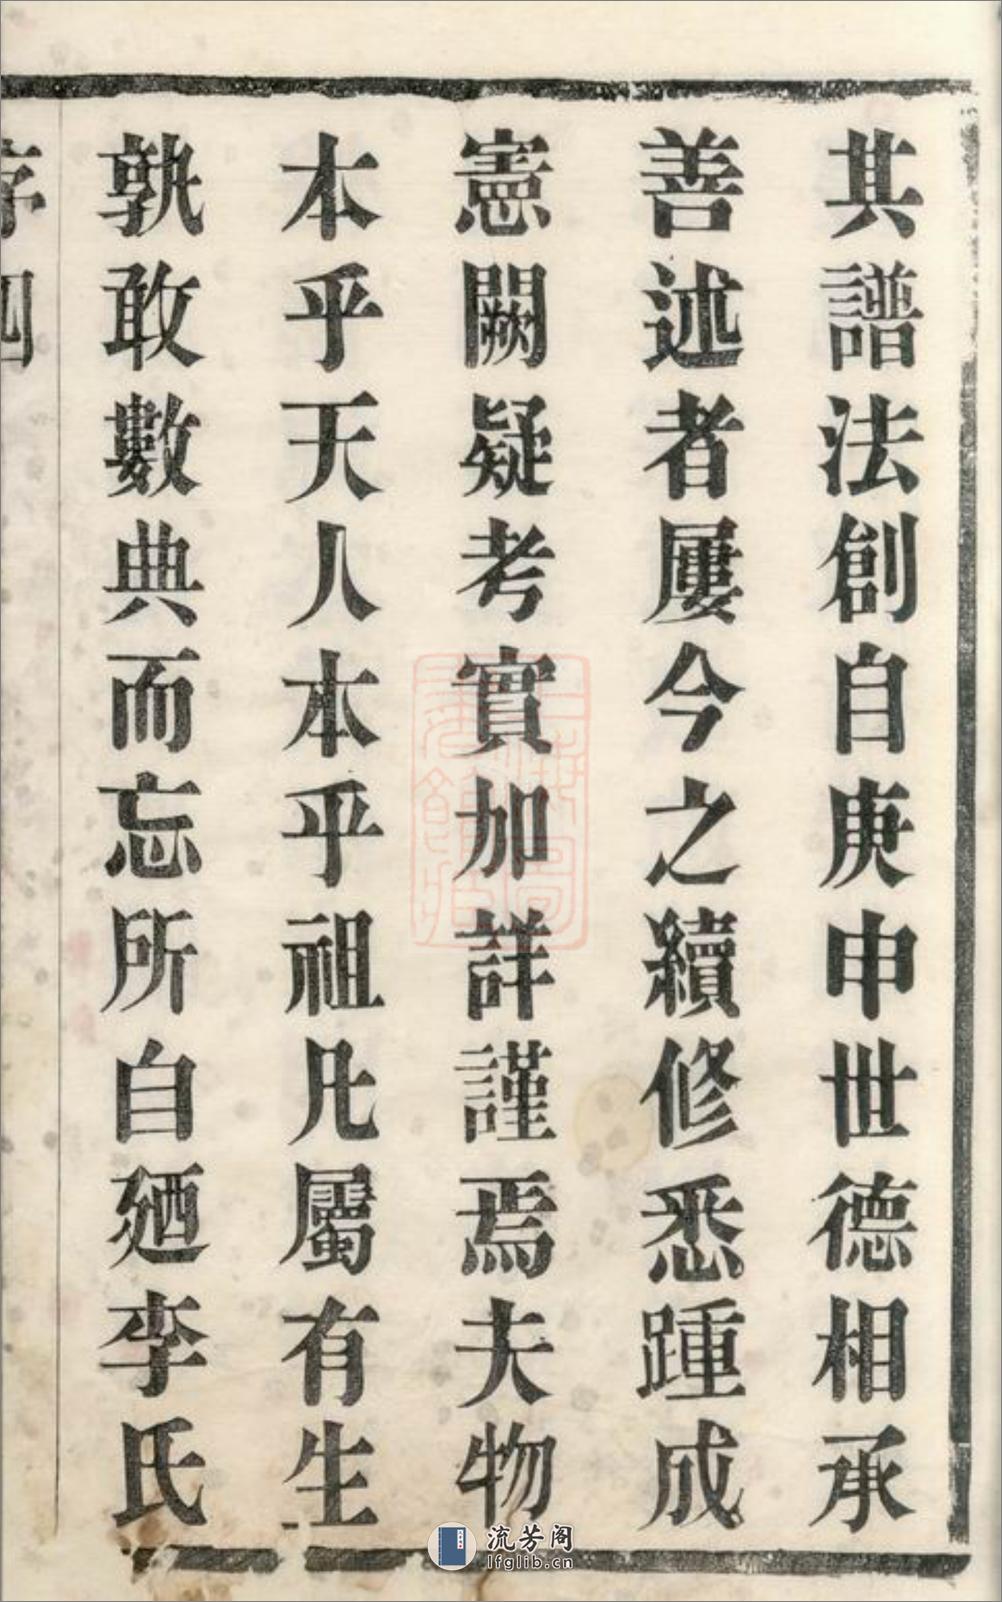 其譜法創自庚申世德相承
善述者屢今之續修悉踵成
憲闕疑考實加詳謹焉夫物
本乎天人本乎祖凡屬有生
孰敢數典而忘所自廼李氏
序四
流芳阁
lfglib.cn